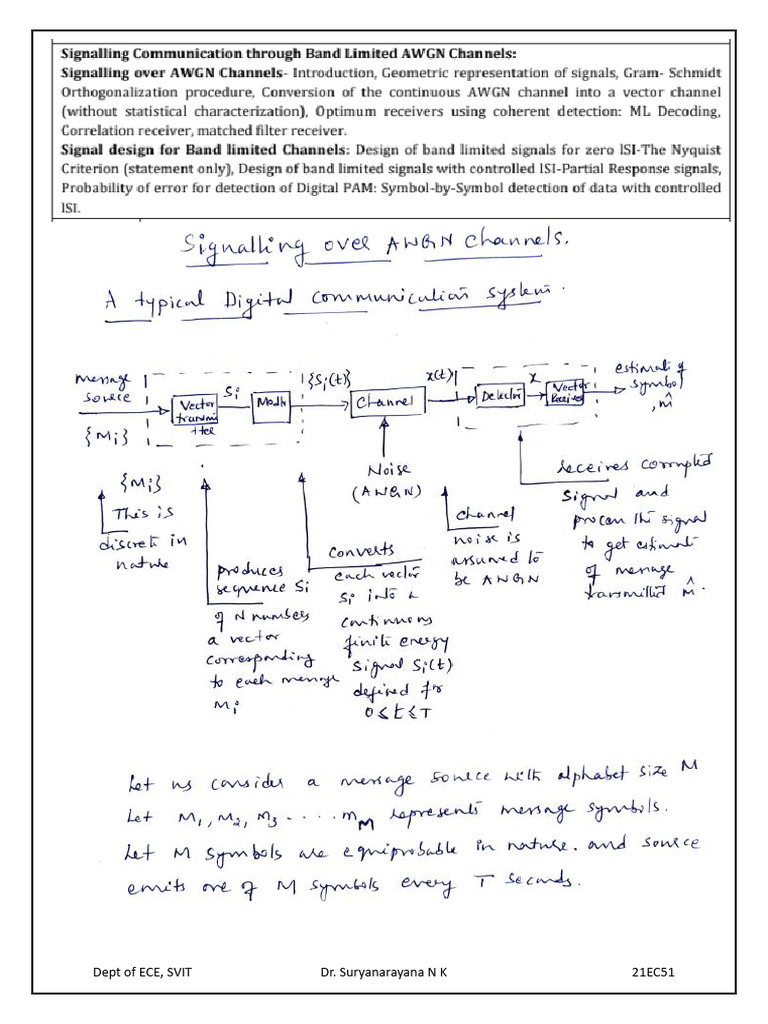 Signalling Communication through Band Limited AWGN Channels:
Signalling over AWGN Channels- Introduction, Geometric representation of signals, Gram- Schmidt
Orthogonalization procedure, Conversion of the continuous AWGN channel into a vector channel
(without statistical characterization), Optimum receivers using coherent detection: ML Decoding,
Correlation receiver, matched filter receiver.
Signal design for Band limited Channels: Design of band limited signals for zero ISI-The Nyquist
Criterion (statement only), Design of band limited signals with controlled ISI-Partial Response signals,
Probability of error for detection of Digital PAM: Symbol-by-Symbol detection of data with controlled
ISI.
Signalling over AWGN Channels.
A typical Digital communication system.
message
source
{Mi}
Vector
transmi
tter
Si
Modlr
{Si(t)}
Channel
Noise
(AWGN)
x(t)
Detector
x
Vector
Receiver
estimate of
symbol
, m̂
{Mi}
This is
discrete in
nature
produces
sequence Si
of N numbers
a vector
corresponding
to each message
Mi
converts
each vector
Si into a
continuous
finite energy
signal Si(t)
defined for
0≤t≤T
channel
noise is
assumed to
be AWGN
receives corrupted
signal and
process the signal
to get estimate
of message
transmitted m̂.
Let us consider a message source with alphabet size M
Let M1, M2, M3 ..... mM represents message symbols.
Let M symbols are equiprobable in nature. and source
emits one of M symbols every T seconds.
Dept of ECE, SVIT Dr. Suryanarayana N K 21EC51